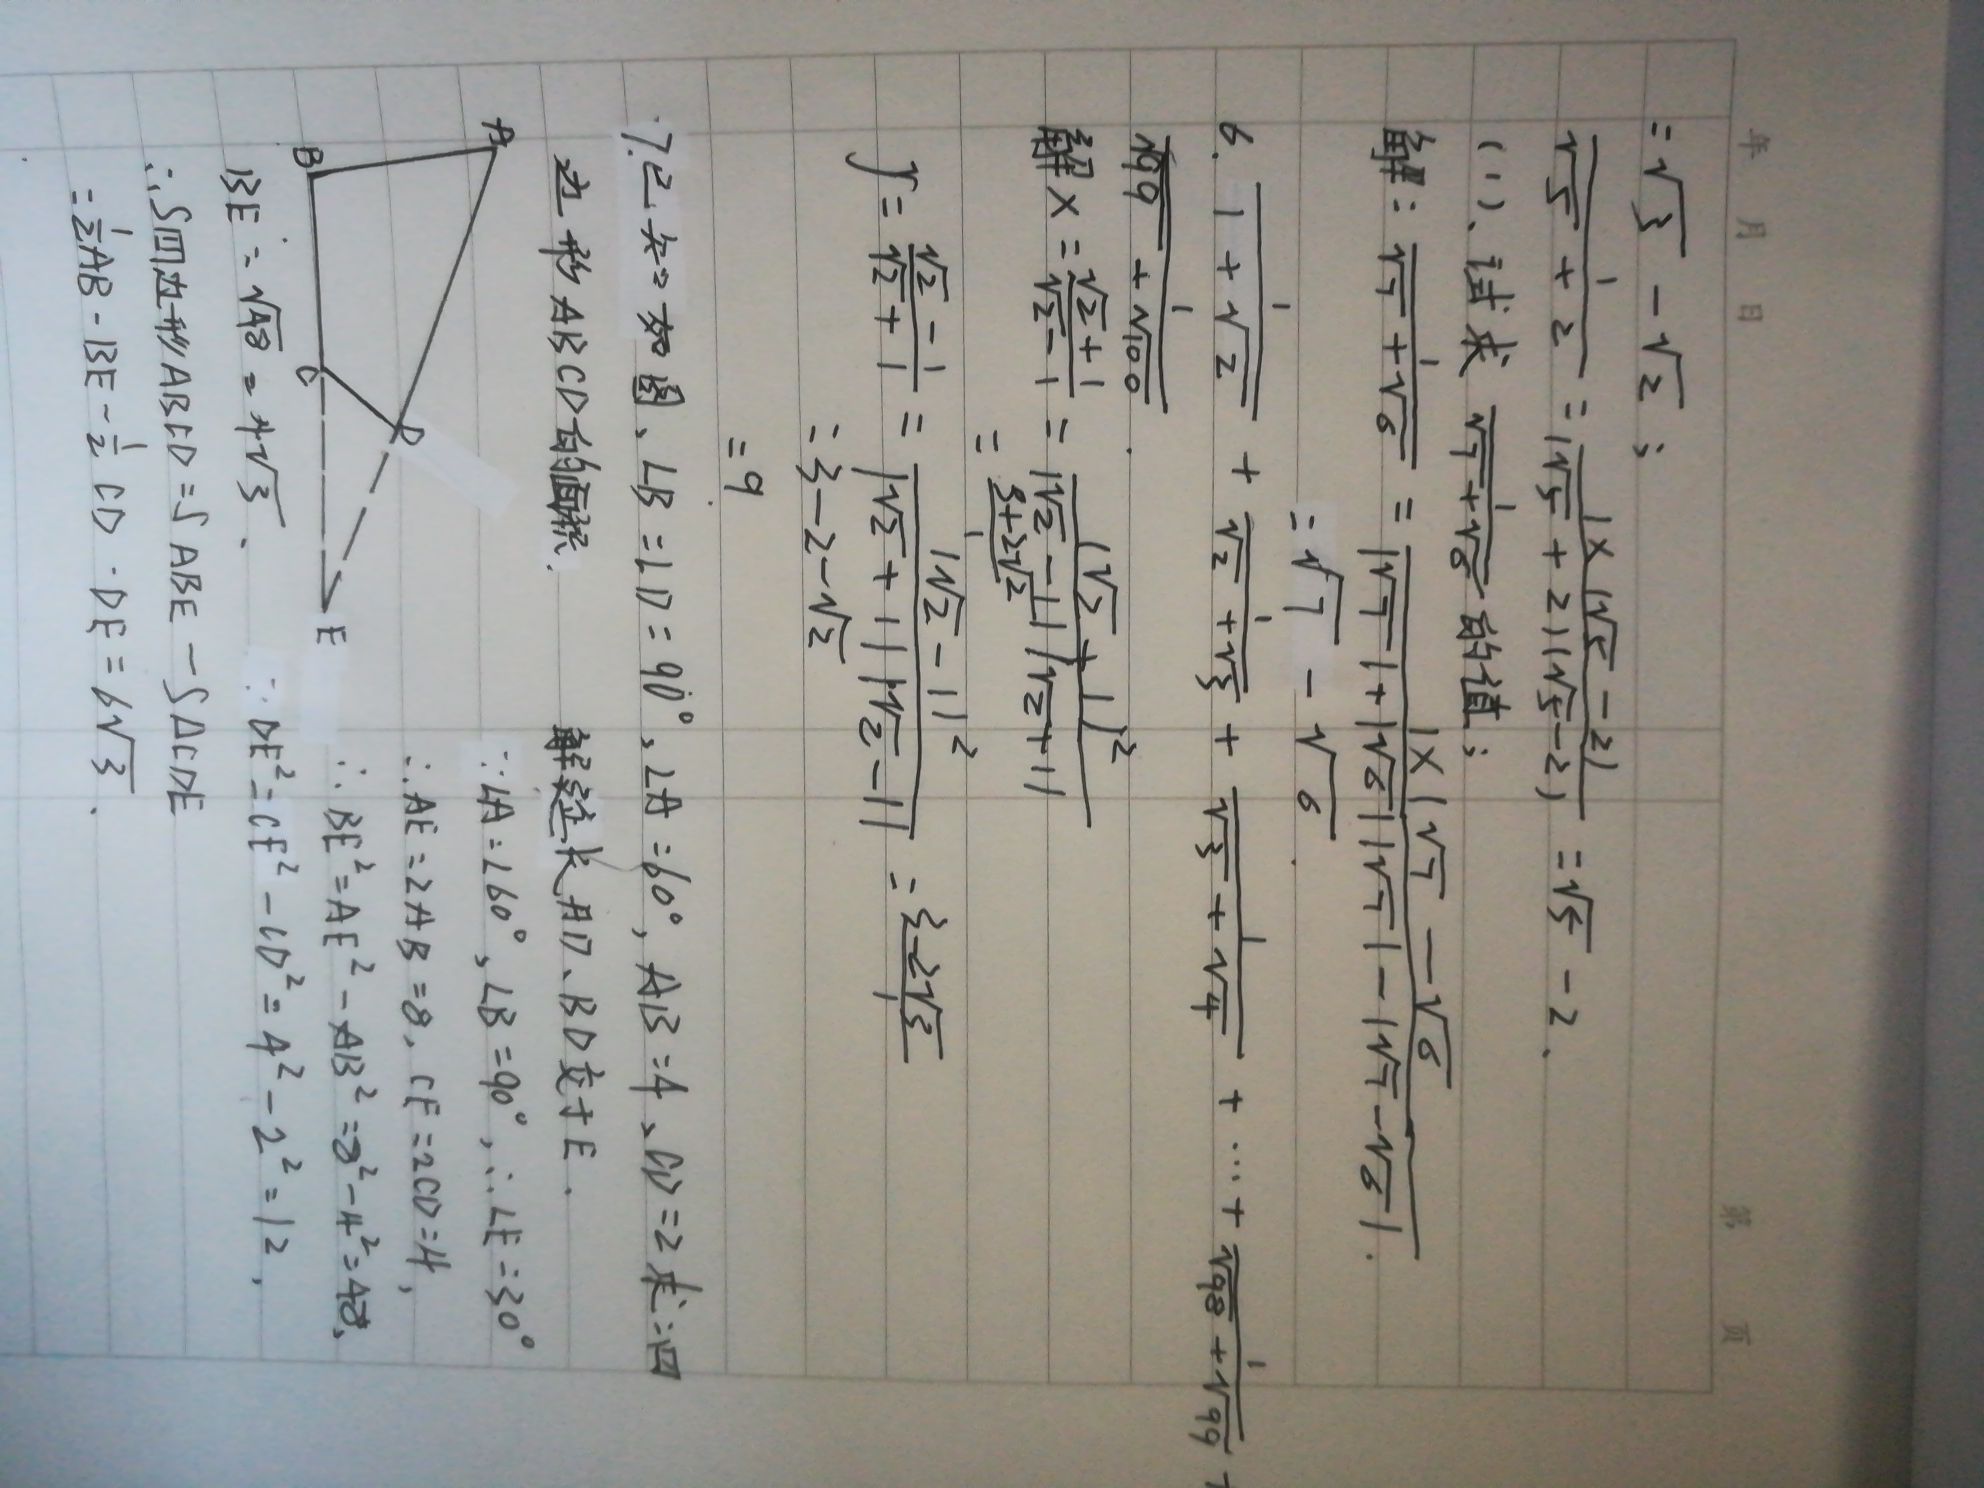 年 月 日 第 页
=√3-√2;
1/(√5+2)=1×(√5-2)/(√5+2)(√5-2)=√5-2.
(1)、试求1/(√7+√6)的值;
解:1/(√7+√6)=1×(√7-√6)/|√7|+|√6||√7|-|√7-√6|.
=√7-√6.
6. 1/(1+√2)+1/(√2+√3)+1/(√3+√4)+…+1/(√98+√99)+
1/(√99+√100).
解x=(√2+1)/(√2-1)=(√2+1)²/(√2-1)(√2+1)
=(3+2√2)/1
y=(√2-1)/(√2+1)=(√2-1)²/(√2+1)(√2-1)=(3-2√3)/1
=3-2-√2
=9
7.已知如图、∠B=∠D=90°、∠A=60°,AB=4、CD=2求:四
边形ABCD的面积.
解延长AD、BD交于E.
∵∠A=∠60°、∠B=90°,∴∠E=30°
∴AE=2AB=8,CE=2CD=4,
∴BE²=AE²-AB²=8²-4²=48、
A
B
C
D
E
BE=√48=4√3.
∵DE²=CE²-CD²=4²-2²=12,
∴S四边形ABCD=SABE-S△CDE
=½AB·BE-½CD·DE=6√3.